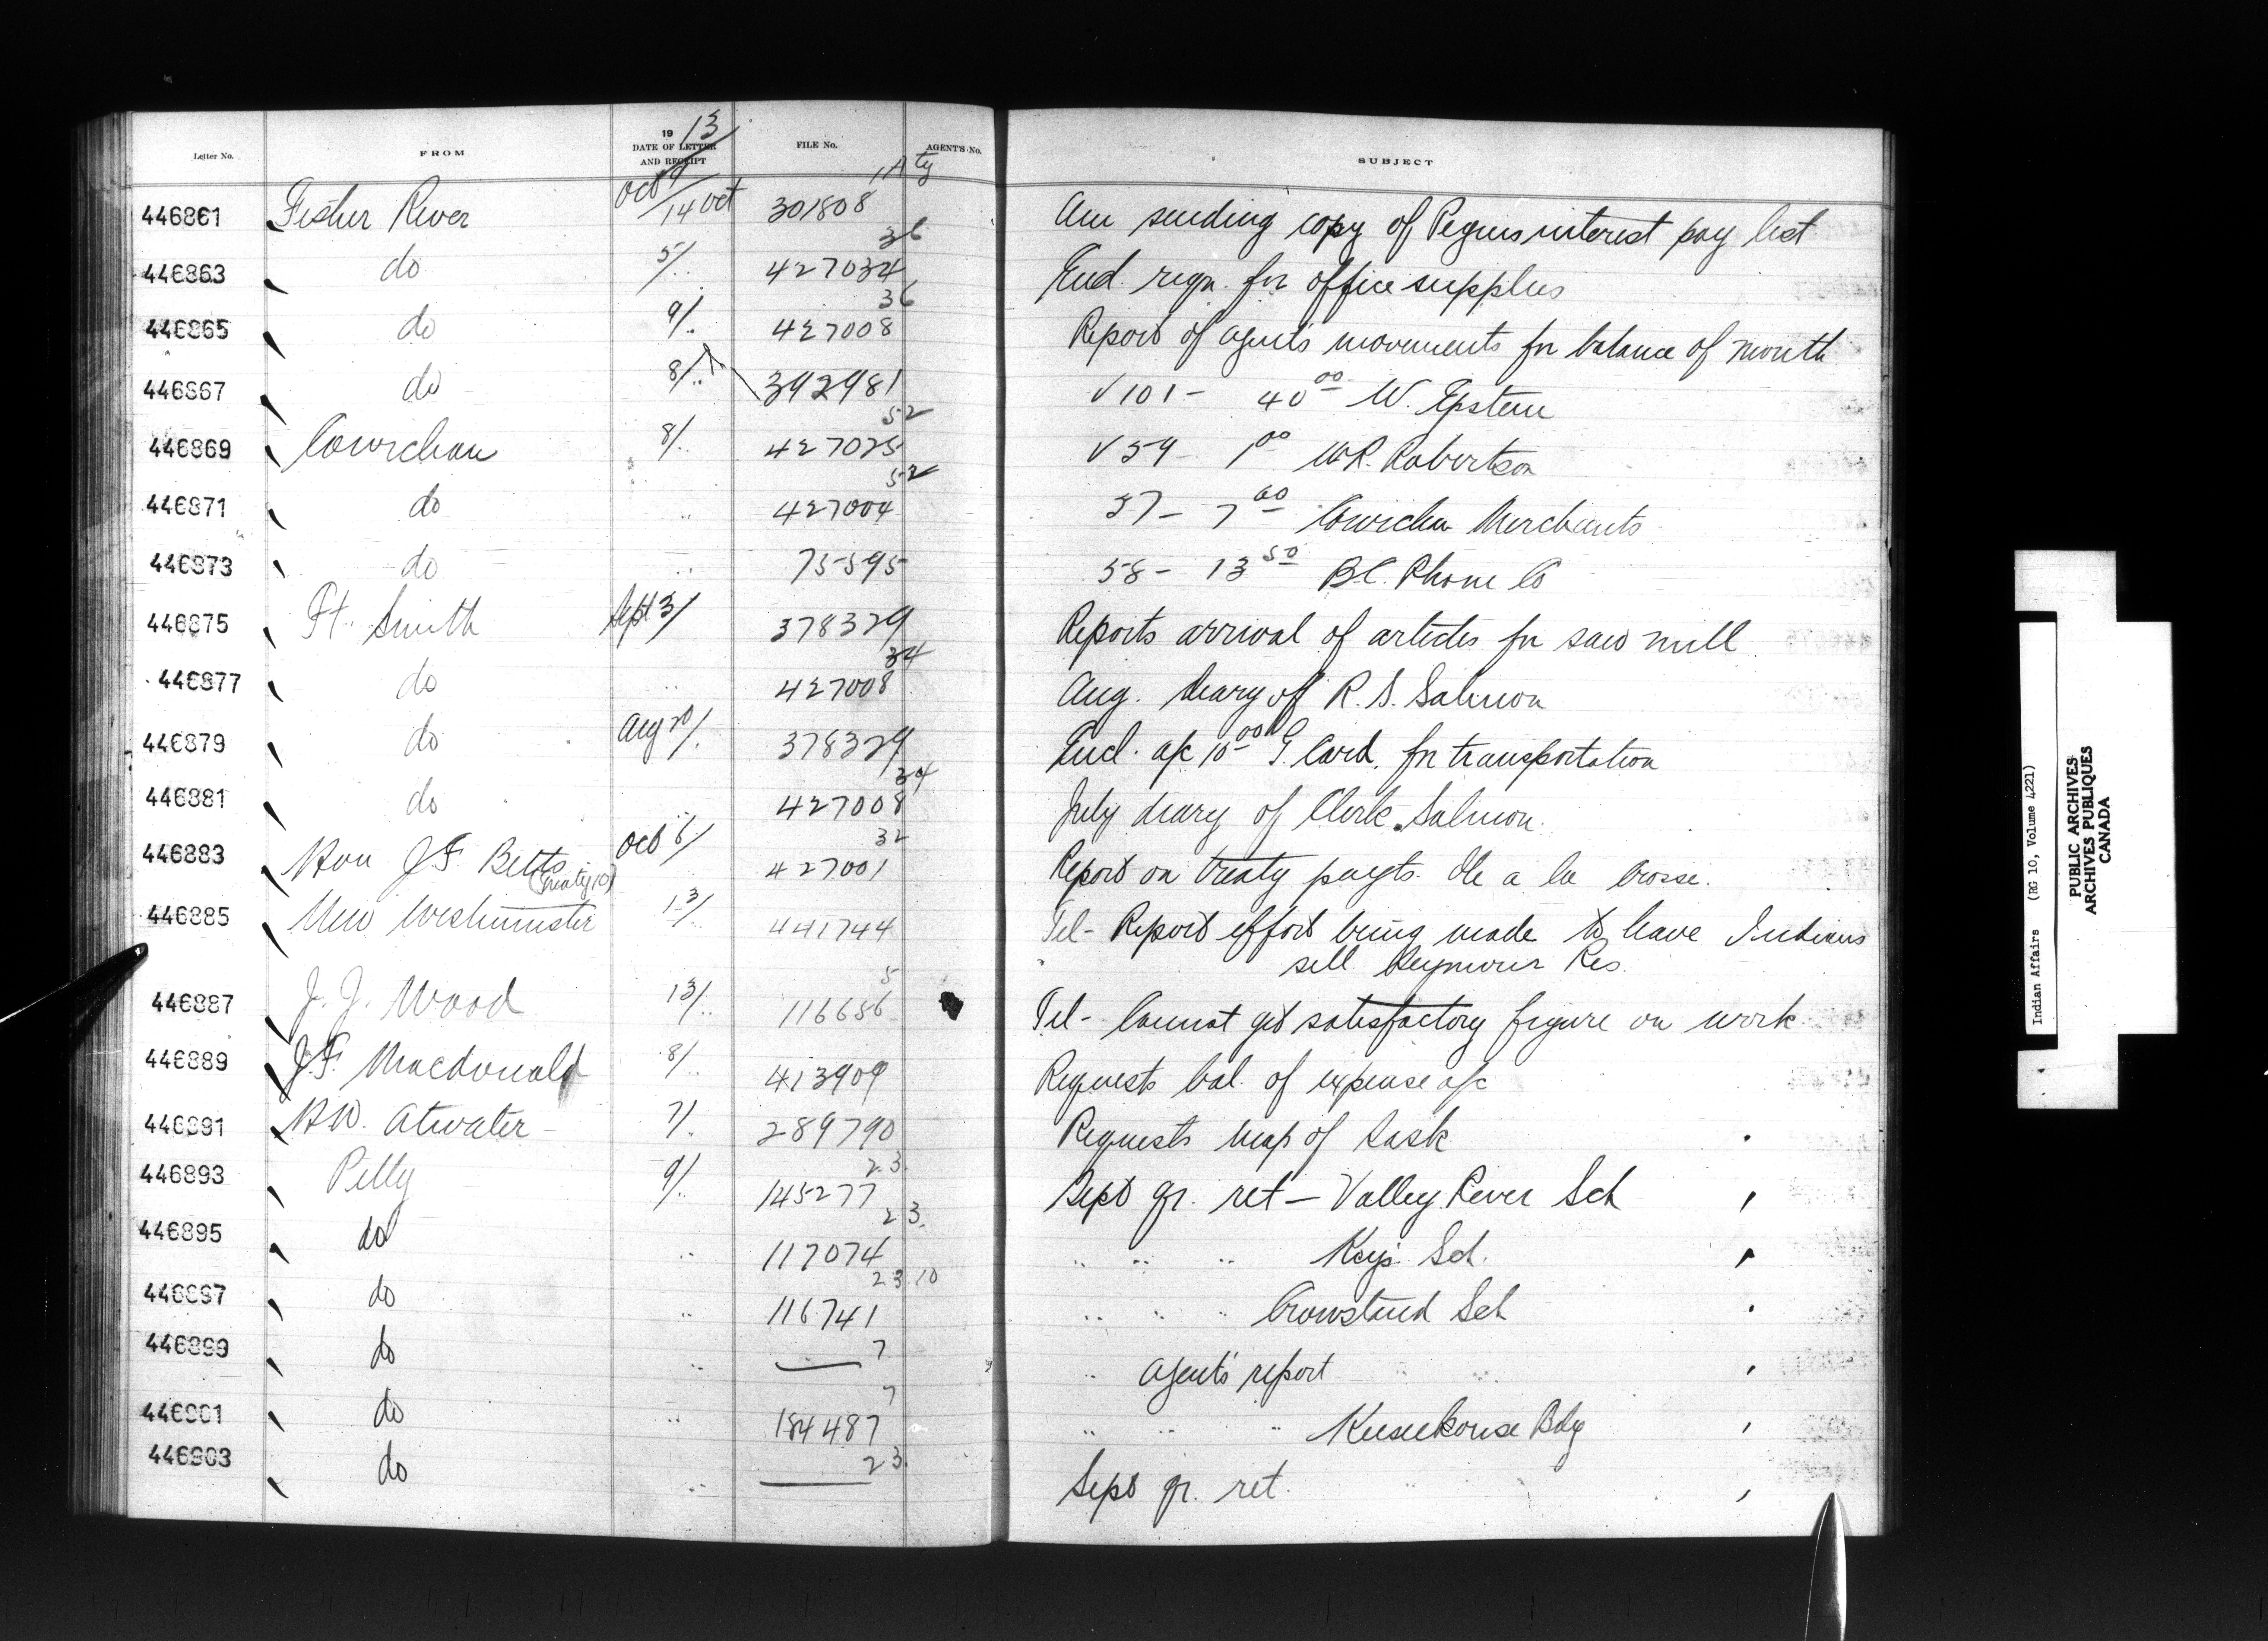 19 13
Letter No. FROM DATE OF LETTER AND RECEIPT FILE No. AGENT'S No. SUBJECT
446861 Fisher River Oct 9/14 Oct 301808 Am sending copy of Peguis interest pay list
446863 do 5/.. 427034 36 Encl. reqn. for office supplies
446865 do 9/.. 427008 36 Report of agent's movements for balance of month
446867 do 8/.. 392981 √101 - 40 00 W. Epstein
446869 Cowichan 8/.. 427025 52 √59 - 1 00 W.R. Robertson
446871 do .. 427004 52 57 - 7 60 Cowichan Merchants
446873 do .. 75595 58 - 13 50 B.C. Phone Co
446875 Ft. Smith Sept 3/ 378329 Reports arrival of articles for saw mill
446877 do .. 427008 34 Aug. diary of R. S. Salmon
446879 do Aug 20/. 378329 Encl. a/c 10 00 G. Card. for transportation
446881 do .. 427008 34 July diary of Clerk Salmon.
446883 Hon J F. Betts (Treaty 10) Oct 6/ 427001 32 Report on treaty payts. Ile a la Crosse.
446885 New Westminster 13/.. 441744 Tel - Report effort being made to have Indians
sell Seymour Res.
446887 J. J. Wood 13/.. 116656 5 Tel - Cannot get satisfactory figure on work
446889 J.F. Macdonald 8/.. 413909 Requests bal. of expense a/c
446891 H.W. Atwater 7/. 289790 Requests map of Sask
446893 Pelly 9/.. 145277 23 Sept qr. ret - Valley River Sch
446895 do .. 117074 23 .. .. .. Keys Sch.
446897 do .. 116741 23.10 .. .. .. Crowstand Sch
446899 do .. — 7 .. Agent's report
446901 do .. 184487 7 .. .. .. Keeseekouse Bdg
446903 do .. — 23 Sept qr. ret.
Indian Affairs (RG 10, Volume 4221)
PUBLIC ARCHIVES
ARCHIVES PUBLIQUES
CANADA